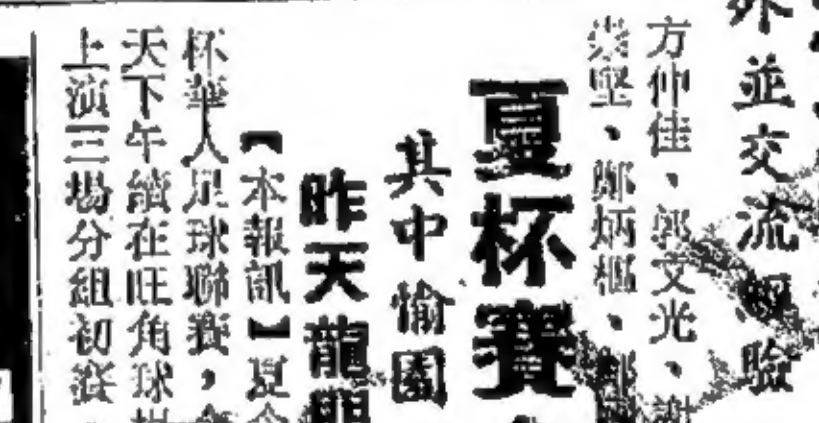 外並交流經驗
方仲佳、郭文光、謝
崇堅、鄭炳樞、鄭
夏杯賽
其中愉園
昨天龍門
【本報訊】夏令
杯華人足球聯賽，今
天下午續在旺角球場
上演三場分組初賽